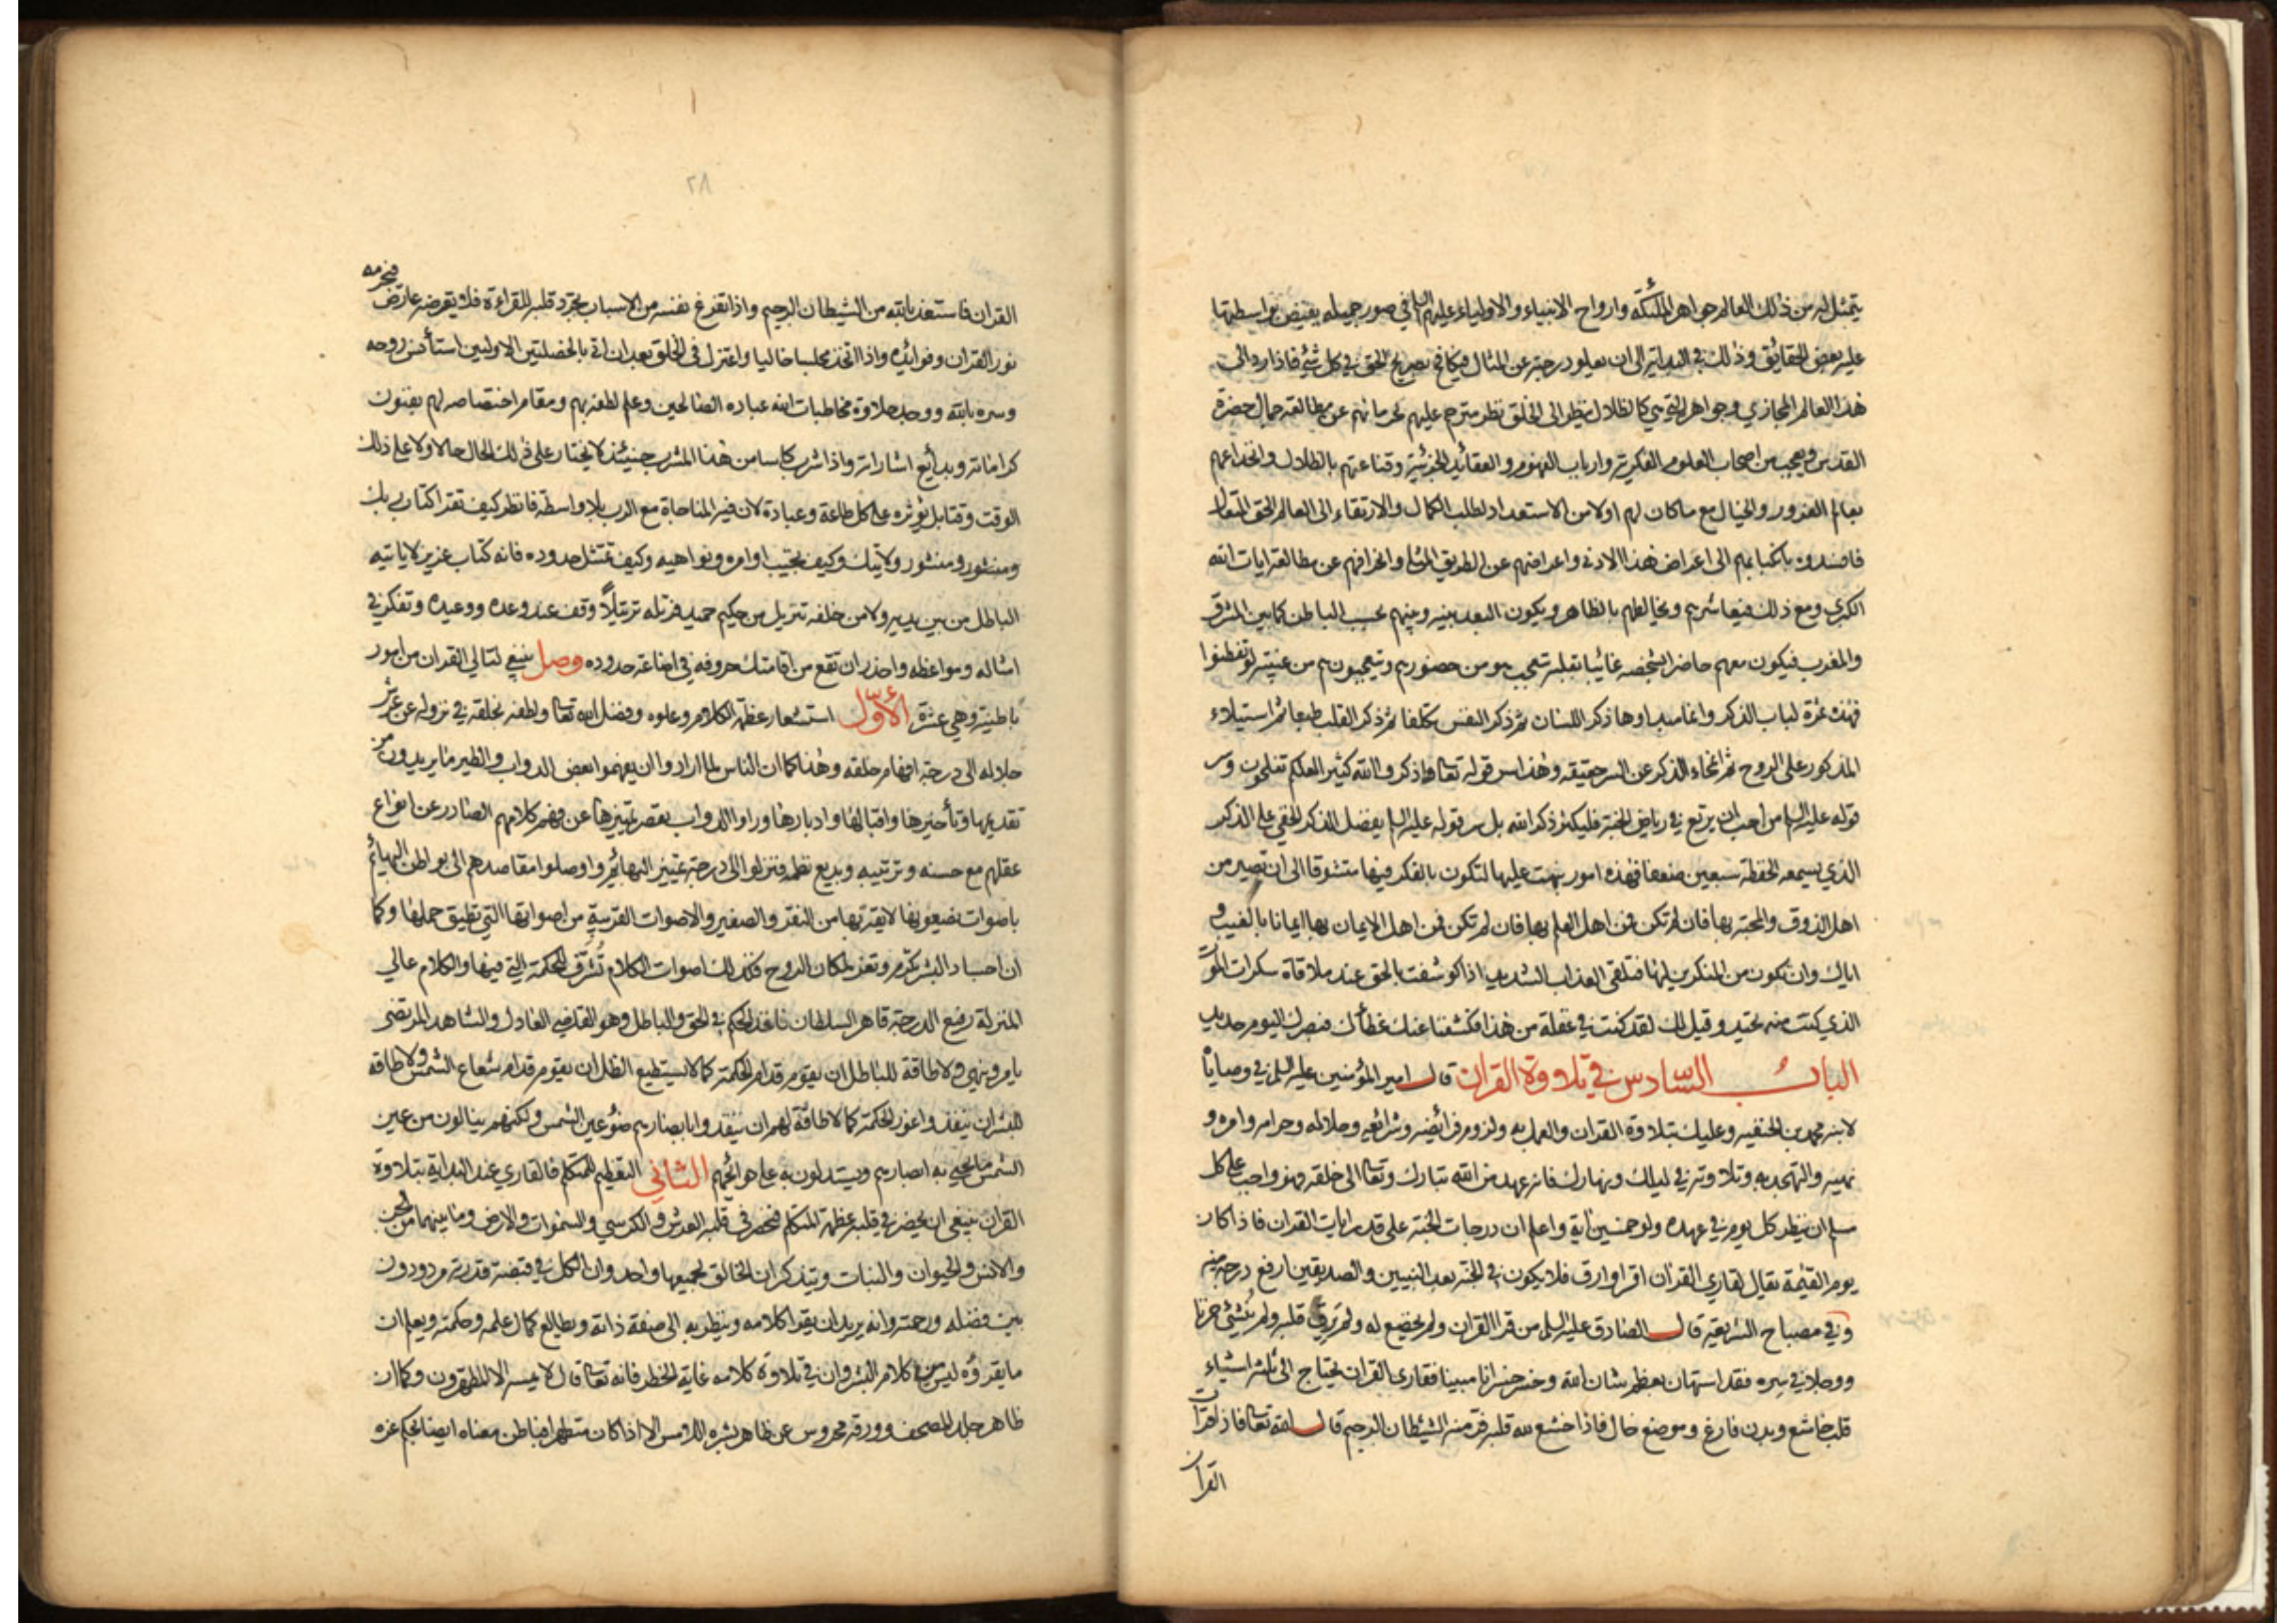 يتمثل له من ذلك العالم جواهر الملئكة وارواح الانبياء والاولياء عليهم السلم في صور جميله يفيض بواسطتها
عليه بعض الحقايق وذلك في البداية الى ان يعلو درجته عن المثال فيكافح بصريح الحق في كل شيء فاذا رد الى
هذا العالم المجازي وجواهره التي هي كالظلال ينظر الى الخلق نظر مترحم عليهم لحرمانهم عن مطالعة جمال حضرة
القدس ويعجب من اصحاب العلوم الفكرية وارباب الفهوم والعقائد الجزئية وقناعتهم بالظلال وانخداعهم
بعالم الغرور والخيال مع ماكان لهم اولا من الاستعداد لطلب الكمال والارتقاء الى العالم الحق المتعال
بانكبابهم الى اغراض هذا الادنى واعراضهم عن الطريق المثلى وانحرافهم عن مطالعة ايات الله
الكبرى ومع ذلك فيعاشرهم ويخالطهم بالظاهر ويكون البعد بينه وبينهم بحسب الباطن كما بين المشرق
والمغرب فيكون معهم حاضرا بشخصه غائبا بقلبه يتعجب هو من حضورهم ويتعجبون هم من غيبته لو تفطنوا
فهذه ثمرة لباب الذكر وانما مبداوها ذكر اللسان ثم ذكر النفس تكلفا ثم ذكر القلب طبعا ثم استيلاء
المذكور على الروح ثم انمحاء الذكر عن السر حقيقه وهذا سر قوله تعا فاذكروا الله كثيرا لعلكم تفلحون وسر
قوله عليه السلم من احب ان يرتع في رياض الجنة فليكثر ذكر الله بل سر قوله عليه السلم يفضل الذكر الخفي على الذكر
الذي يسمعه الحفظة سبعين ضعفا فهذه امور نبهت عليها لتكون بالفكر فيها متشوقا الى ان تصير من
اهل الذوق والمحبة بها فان لم تكن فمن اهل العلم بها فان لم تكن فمن اهل الايمان بها ايمانا بالغيب و
اياك وان تكون من المنكرين لها فتلقى العذاب الشديد اذا كوشفت بالحق عند ملاقاة سكرات الموت
الذي كنت منه تحيد وقيل لك لقد كنت في غفلة من هذا فكشفنا عنك غطاءك فبصرك اليوم حديد
الباب السادس في تلاوة القران قال امير المؤمنين عليه السلم في وصاياه
لابنه محمد بن الحنفيه وعليك بتلاوة القران والعمل به ولزوم فرائضه وشرائعه وحلاله وحرامه وامره و
نهيه والتهجد به وتلاوته في ليلك ونهارك فانه عهد من الله تبارك وتعا الى خلقه فهو واجب على كل
مسلم ان ينظر كل يوم في عهده ولو خمسين اية واعلم ان درجات الجنة على قدر ايات القران فاذا كان
يوم القيمة يقال لقاري القران اقرا وارق فلا يكون في الجنة بعد النبيين والصديقين ارفع درجة منه
وفي مصباح الشريعة قال الصادق عليه السلم من قرا القران ولم يخضع له ولم يرق قلبه ولم ينشئ حزنا
ووجلا في سره فقد استهان بعظم شان الله وخسر خسرانا مبينا فقاري القران يحتاج الى ثلثة اشياء
قلب خاشع وبدن فارغ وموضع خال فاذا خشع لله قلبه فر منه الشيطان الرجيم قال الله تعا فاذا قرات
القران
٢٨
القران فاستعذ بالله من الشيطان الرجيم واذا تفرغ نفسه من الاسباب تجرد قلبه للقراءة فلا يعرضه عارض فيحرمه
نور القران وفوائده واذا اتخذ مجلسا خاليا واعتزل من الخلق بعد ان اتى بالخصلتين الاوليين استأنس روحه
وسره بالله ووجد حلاوة مخاطبات الله عباده الصالحين وعلم لطفه بهم ومقام اختصاصه لهم بفنون
كراماته وبدائع اشاراته واذا شرب كاسا من هذا المشرب حينئذ لا يختار على ذلك الحال حالا ولا على ذلك
الوقت وقتا بل يؤثره على كل طاعة وعبادة لان فيه المناجاة مع الرب بلا واسطة فانظر كيف تقرا كتاب ربك
ومنشور ولايتك وكيف تجيب اوامره ونواهيه وكيف تمتثل حدوده فانه كتاب عزيز لا ياتيه
الباطل من بين يديه ولا من خلفه تنزيل من حكيم حميد فرتله ترتيلا وقف عند وعده ووعيده وتفكر في
امثاله ومواعظه واحذر ان تقع من اقامتك حروفه في اضاعة حدوده وصل ينبغي لتالي القران من امور
باطنية وهي عشرة الأول استشعار عظمة الكلام وعلوه وفضل الله تعا ولطفه بخلقه في نزوله عن عرش
جلاله الى درجة افهام خلقه وهذا كما ان الناس لما ارادوا ان يفهموا بعض الدواب والطير ما يريدون من
تقديمها وتأخيرها واقبالها وادبارها وراوا الدواب يقصر تمييزها عن فهم كلامهم الصادر عن انواع
عقلهم مع حسنه وترتيبه وبديع نظمه فنزلوا الى درجة تمييز البهائم واوصلوا مقاصدهم الى بواطن البهائم
باصوات يضيعونها لايقة بها من النقر والصفير والاصوات القريبة من اصواتها التي تطيق حملها وكما
ان اجساد البشر تكرم وتعز لمكان الروح فكذلك اصوات الكلام تشرف للحكمة التي فيها والكلام عالي
المنزلة رفيع الدرجة قاهر السلطان نافذ الحكم في الحق والباطل وهو القاضي العادل والشاهد المرتضى
يامر وينهى ولا طاقة للباطل ان يقوم قدام الحكمة كما لا يستطيع الظل ان يقوم قدام شعاع الشمس ولا طاقة
للبشر ان ينفذوا غور الحكمة كما لا طاقة لهم ان ينفذوا بابصارهم ضوء عين الشمس ولكنهم ينالون من عين
الشمس ما يحيى به ابصارهم ويستدلون به على حوائجهم الثاني التعظيم للمتكلم فالقاري عند البداية بتلاوة
القران ينبغي ان يحضر في قلبه عظمة المتكلم فيحضر في قلبه العرش والكرسي والسموات والارض وما بينهما من الجن
والانس والحيوان والنبات ويتذكر ان الخالق لجميعها واحد وان الكل في قبضة قدرته مرددون
بين فضله ورحمته وانه يريد ان يقرا كلامه وينظر به الى صفة ذاته ويطالع كمال علمه وحكمته ويعلم ان
ما يقرؤه ليس من كلام البشر وان في تلاوة كلامه غاية الخطر فانه تعا قال لا يمسه الا المطهرون وكما ان
ظاهر جلد المصحف وورقه محروس عن ظاهر بشره اللامس الا اذا كان متطهرا فباطن معناه ايضا بحكم عزه